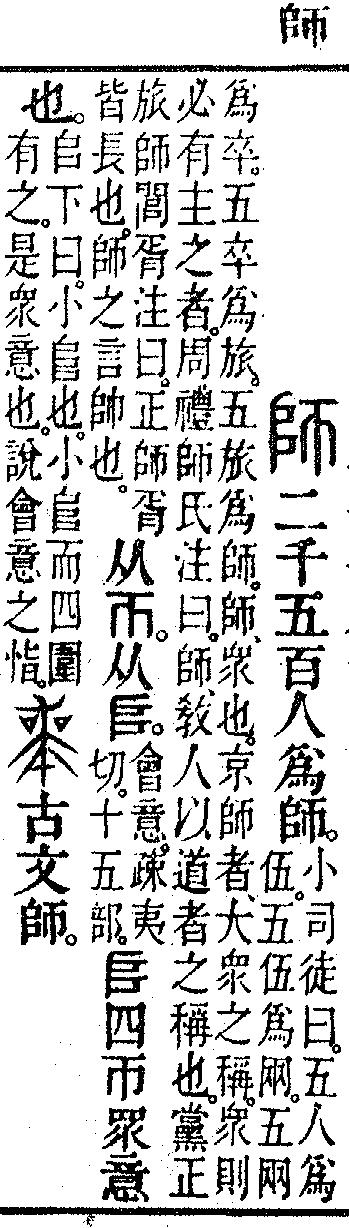 師
師二千五百人爲師。
小司徒曰。五人爲
伍。五伍爲兩。五兩
爲卒。五卒爲旅。五旅爲師。師、衆也。京師者、大衆之稱。衆則
必有主之者。周禮師氏注曰。師、敎人以道者之稱也。黨正
旅師閭胥注曰。正師胥
皆長也。師之言帥也。
从帀。从𠂤。
會意。疎夷
切。十五部。
𠂤四帀眾意
也。
𠂤下曰。小𠂤也。小𠂤而四圍
有之。是衆意也。說會意之恉。
古文師。